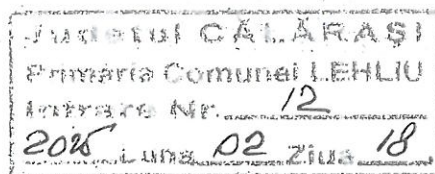 Judetul CĂLĂRAŞI
Primăria Comunei LEHLIU
Intrare Nr. 12
2025 Luna 02 Ziua 18